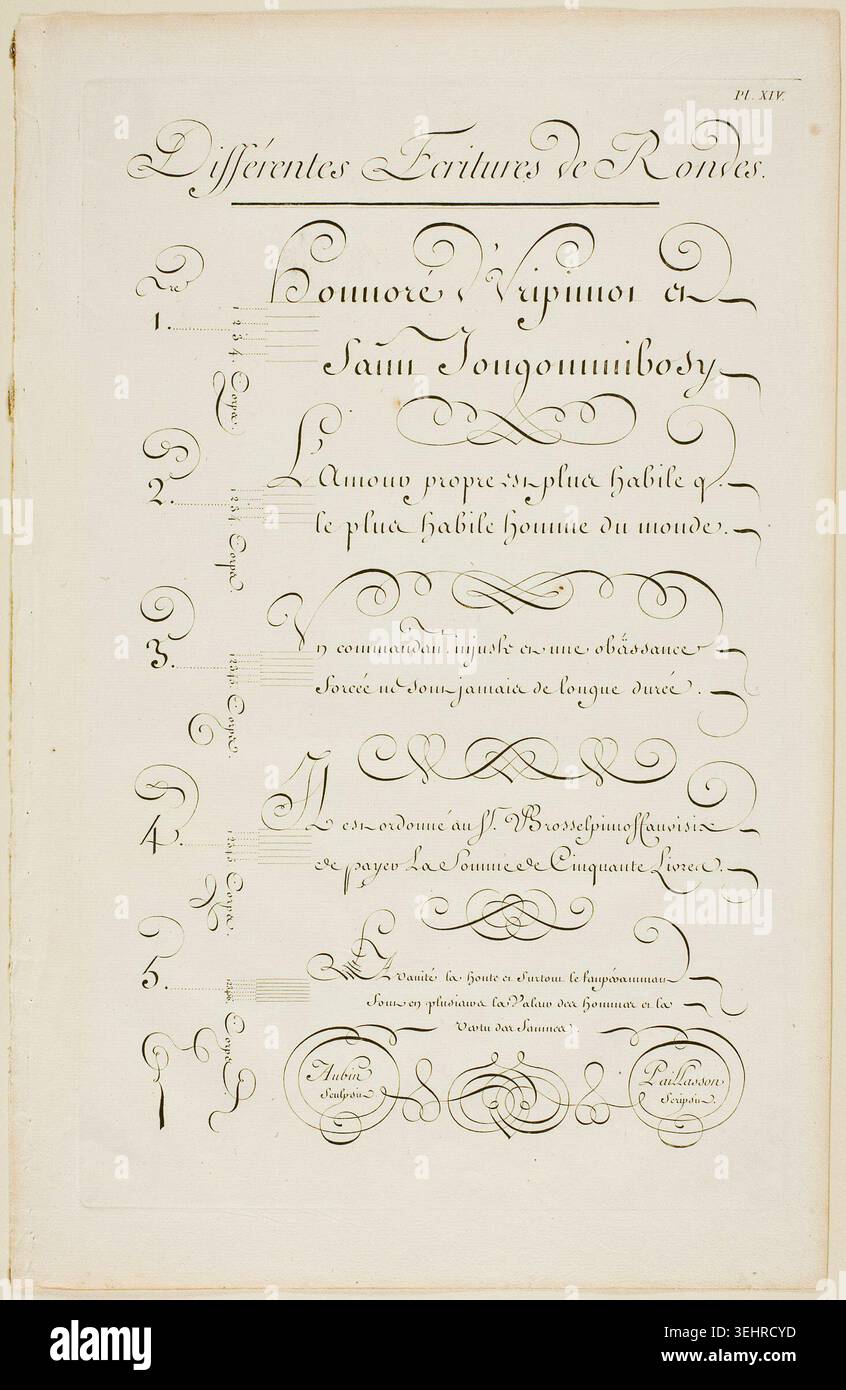 Pl. XIV.
Différentes Ecritures de Rondes.
1.
1 2 3 4. Corps.
Honnoré d'Vripimoi et
Saint Jongomimbosy
2.
1 2 3 4. Corps
L'Amour propre est plus habile q.
le plus habile homme du monde.
3.
1 2 3 4 5 Corps.
Vn commandant injuste et une obäissance
forcée ne sont jamais de longue durée.
4.
1 2 3 4 5 Corps.
Il est ordonné au Sr.
de payer La Somme de Cinquante Livres.
5.
Corps
La Vanité la honte et surtout le tempéramment
Sont en plusieurs la Valeur des hommes et la
Vertu des femmes.
Aubin
Sculpsit
Paillasson
Scripsit.
alamy
Image ID: 3EHRCYD
www.alamy.com